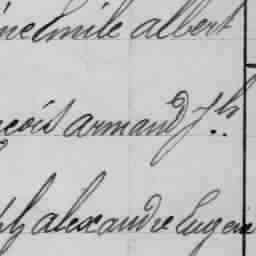 Emile albert
armand Jh
alexandre Eugen